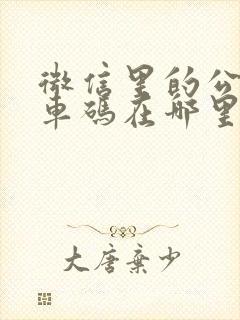 微信里的公
车码在哪里
大唐弃少